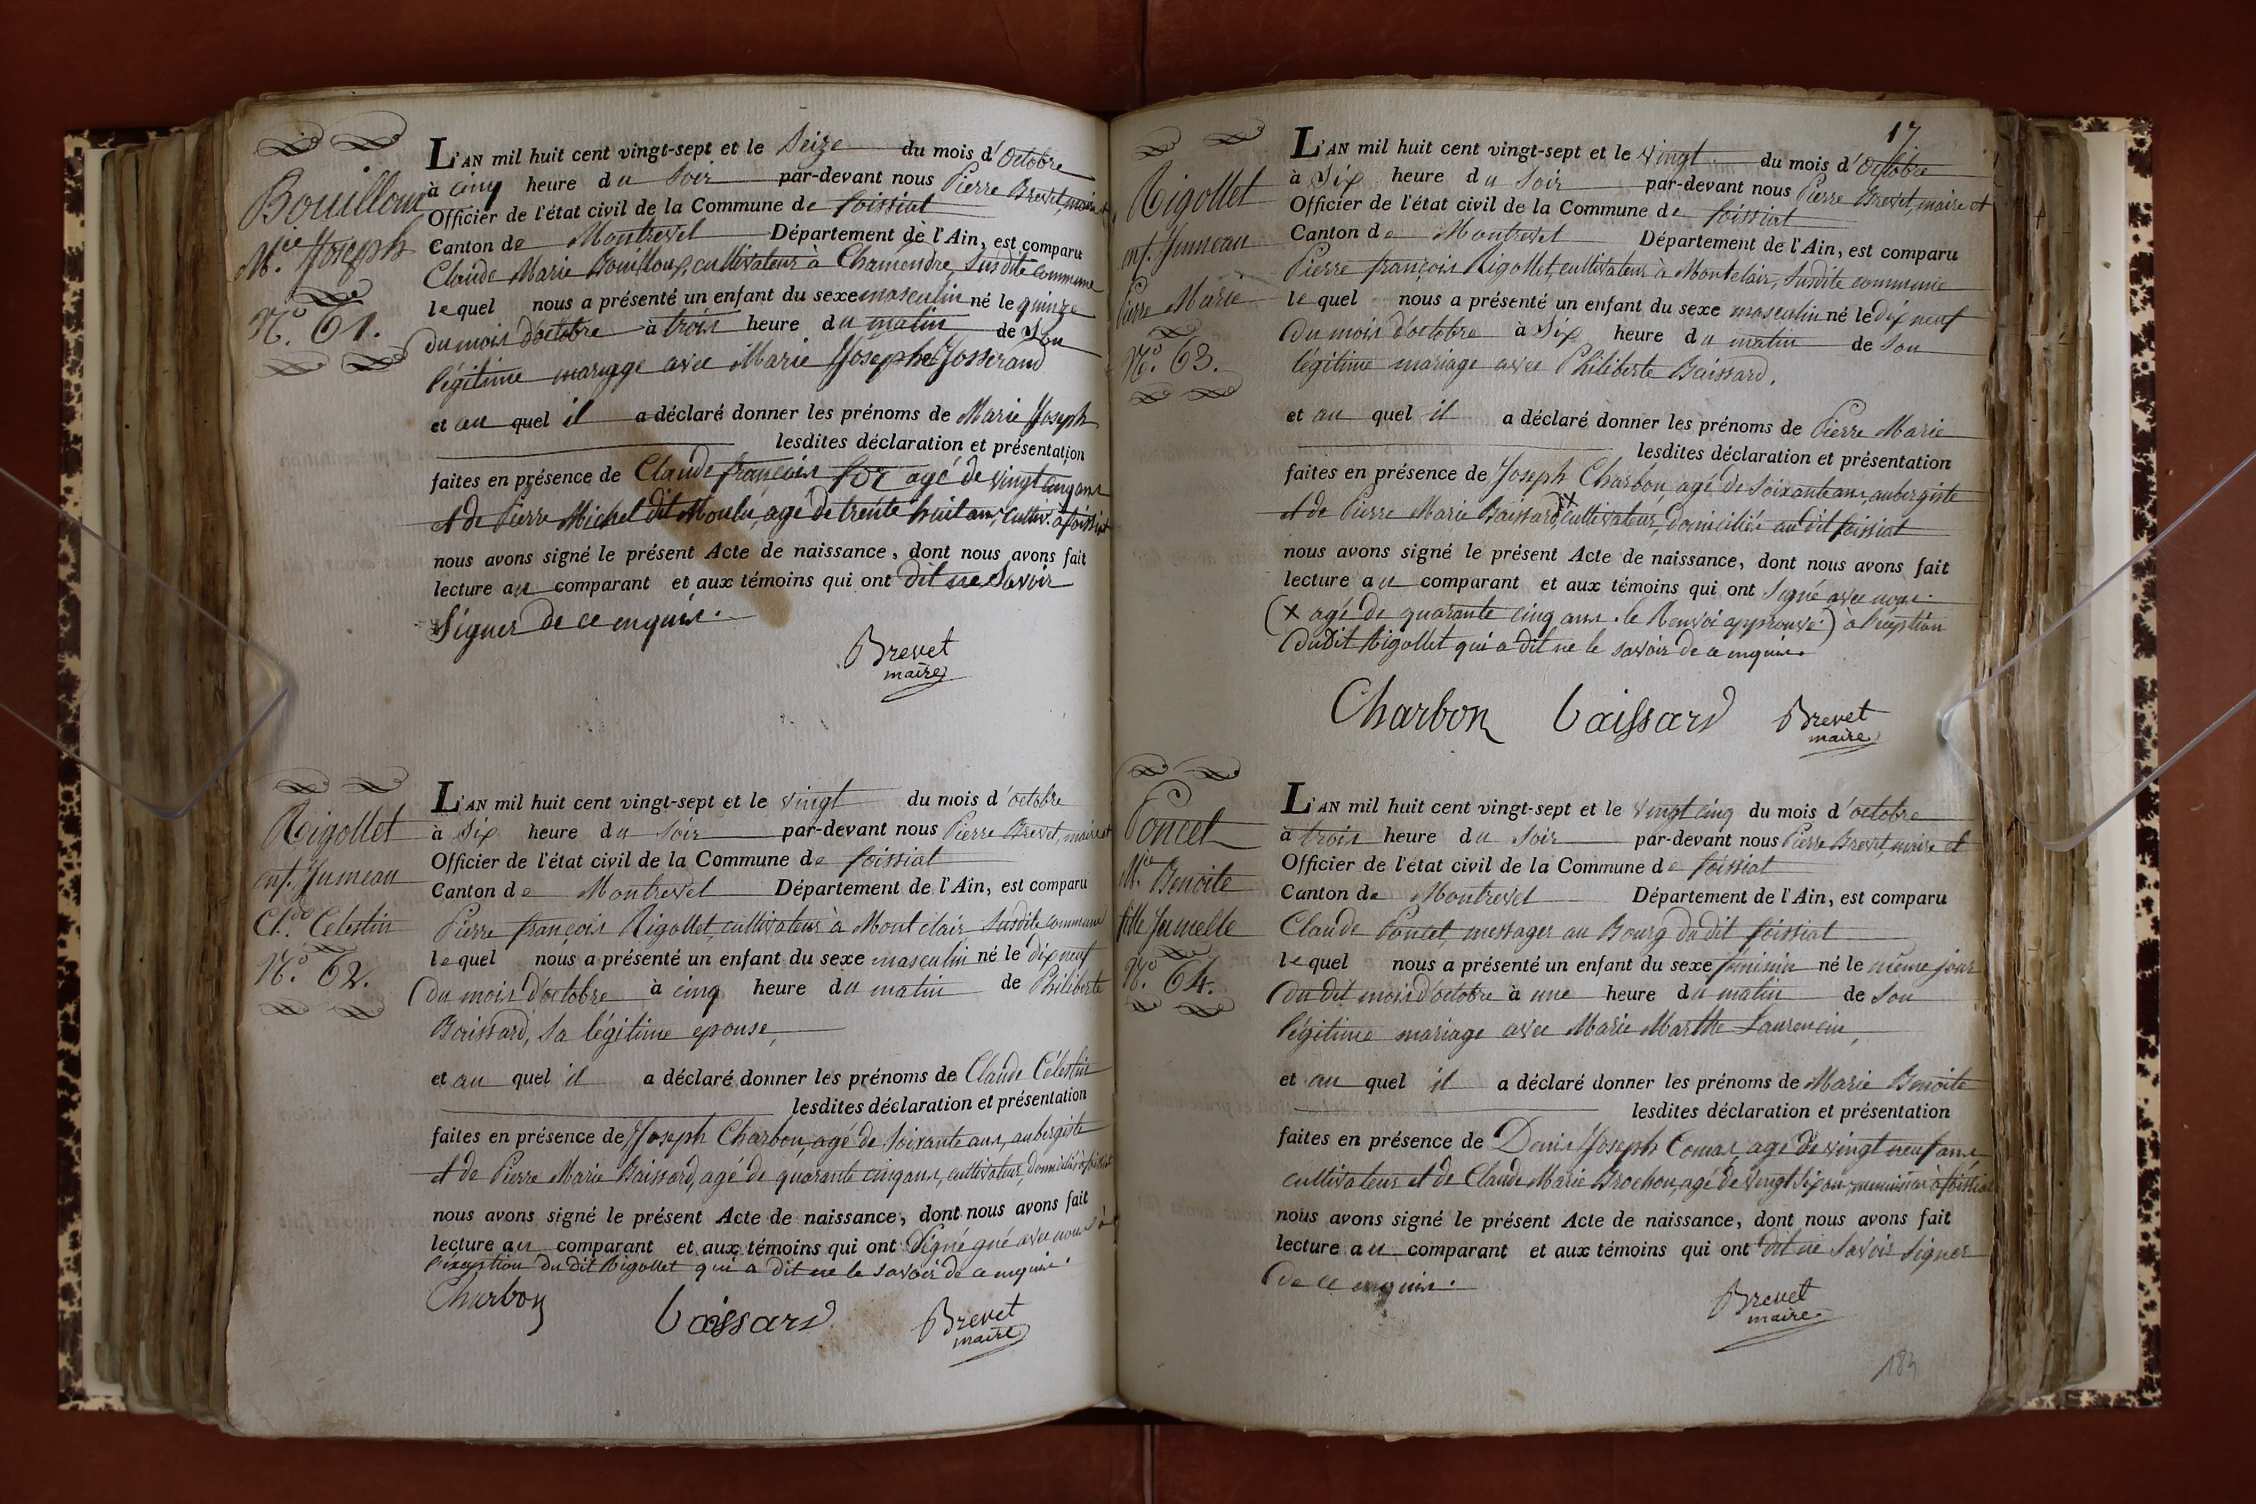 Bouilloux
M.ie Joseph
N.o 61.
L'AN mil huit cent vingt-sept et le Seize du mois d'octobre
à cinq heure du soir par-devant nous Pierre Brevet, maire et
Officier de l'état civil de la Commune de foissiat
Canton de Montrevel Département de l'Ain, est comparu
Claude Marie Bouilloux, cultivateur à Chamendre, Susdite commune
lequel nous a présenté un enfant du sexe masculin né le quinze
du mois d'octobre à trois heure du matin de son
légitime mariage avec Marie Josephe Josserand
et au quel il a déclaré donner les prénoms de Marie Joseph
lesdites déclaration et présentation
faites en présence de Claude françois agé de vingt cinq ans
et de Pierre Michel dit Moulu, agé de trente huit ans, cultiv. à foissiat
nous avons signé le présent Acte de naissance, dont nous avons fait
lecture au comparant et aux témoins qui ont dit ne Savoir
Signer de ce enquis.
Brevet
maire
Rigollet
enf. Jumeau
Cl.de Celestin
N.o 62.
L'AN mil huit cent vingt-sept et le vingt du mois d'octobre
à Six heure du soir par-devant nous Pierre Brevet, maire et
Officier de l'état civil de la Commune de foissiat
Canton de Montrevel Département de l'Ain, est comparu
Pierre françois Rigollet, cultivateur à Mont clair Susdite commune
lequel nous a présenté un enfant du sexe masculin né le dix neuf
du mois d'octobre à cinq heure du matin de Philiberte
Baissard, Sa légitime epouse,
et au quel il a déclaré donner les prénoms de Claude Célestin
lesdites déclaration et présentation
faites en présence de Joseph Charbon, agé de Soixante ans, aubergiste
et de Pierre Marie Baissard, agé de quarante cinq ans, cultivateur, domiciliés à foissiat
nous avons signé le présent Acte de naissance, dont nous avons fait
lecture au comparant et aux témoins qui ont Signé gné avec nous à
l'éxception du dit Rigollet qui a dit ne le savoir de ce enquis.
Charbon Baissard Brevet
maire
17
Rigollet
enf. Jumeau
Pierre Marie
N.o 63.
L'AN mil huit cent vingt-sept et le vingt du mois d'octobre
à Six heure du soir par-devant nous Pierre Brevet, maire et
Officier de l'état civil de la Commune de foissiat
Canton de Montrevel Département de l'Ain, est comparu
Pierre françois Rigollet, cultivateur à Montclair, Susdite commune
lequel nous a présenté un enfant du sexe masculin né le dix neuf
du mois d'octobre à Six heure du matin de Son
légitime mariage avec Philiberte Baissard.
et au quel il a déclaré donner les prénoms de Pierre Marie
lesdites déclaration et présentation
faites en présence de Joseph Charbon, agé de Soixante ans aubergiste
et de Pierre Marie Baissard, × cultivateur, domiciliés au dit foissiat
nous avons signé le présent Acte de naissance, dont nous avons fait
lecture au comparant et aux témoins qui ont Signé avec nous.
(× agé de quarante cinq ans. le Renvoi approuvé.) à l'éxception
du dit Rigollet qui a dit ne le savoir de ce enquis.
Charbon Baissard Brevet
maire
Poncet
M.ie Benoite
fille Jumelle
N.o 64.
L'AN mil huit cent vingt-sept et le vingt cinq du mois d'octobre
à trois heure du soir par-devant nous Pierre Brevet, maire et
Officier de l'état civil de la Commune de foissiat
Canton de Montrevel Département de l'Ain, est comparu
Claude Poncet, messager au Bourg du dit foissiat
lequel nous a présenté un enfant du sexe féminin né le même jour
du dit mois d'octobre à une heure du matin de Son
légitime mariage avec Marie Marthe Laurencin,
et au quel il a déclaré donner les prénoms de Marie Benoite
lesdites déclaration et présentation
faites en présence de Denis Joseph Comas, agé de vingt neuf ans
cultivateur et de Claude Marie Brochon, agé de vingt Six ans, à foissiat
nous avons signé le présent Acte de naissance, dont nous avons fait
lecture au comparant et aux témoins qui ont dit ne Savoir Signer
de ce enquis.
Brevet
maire.